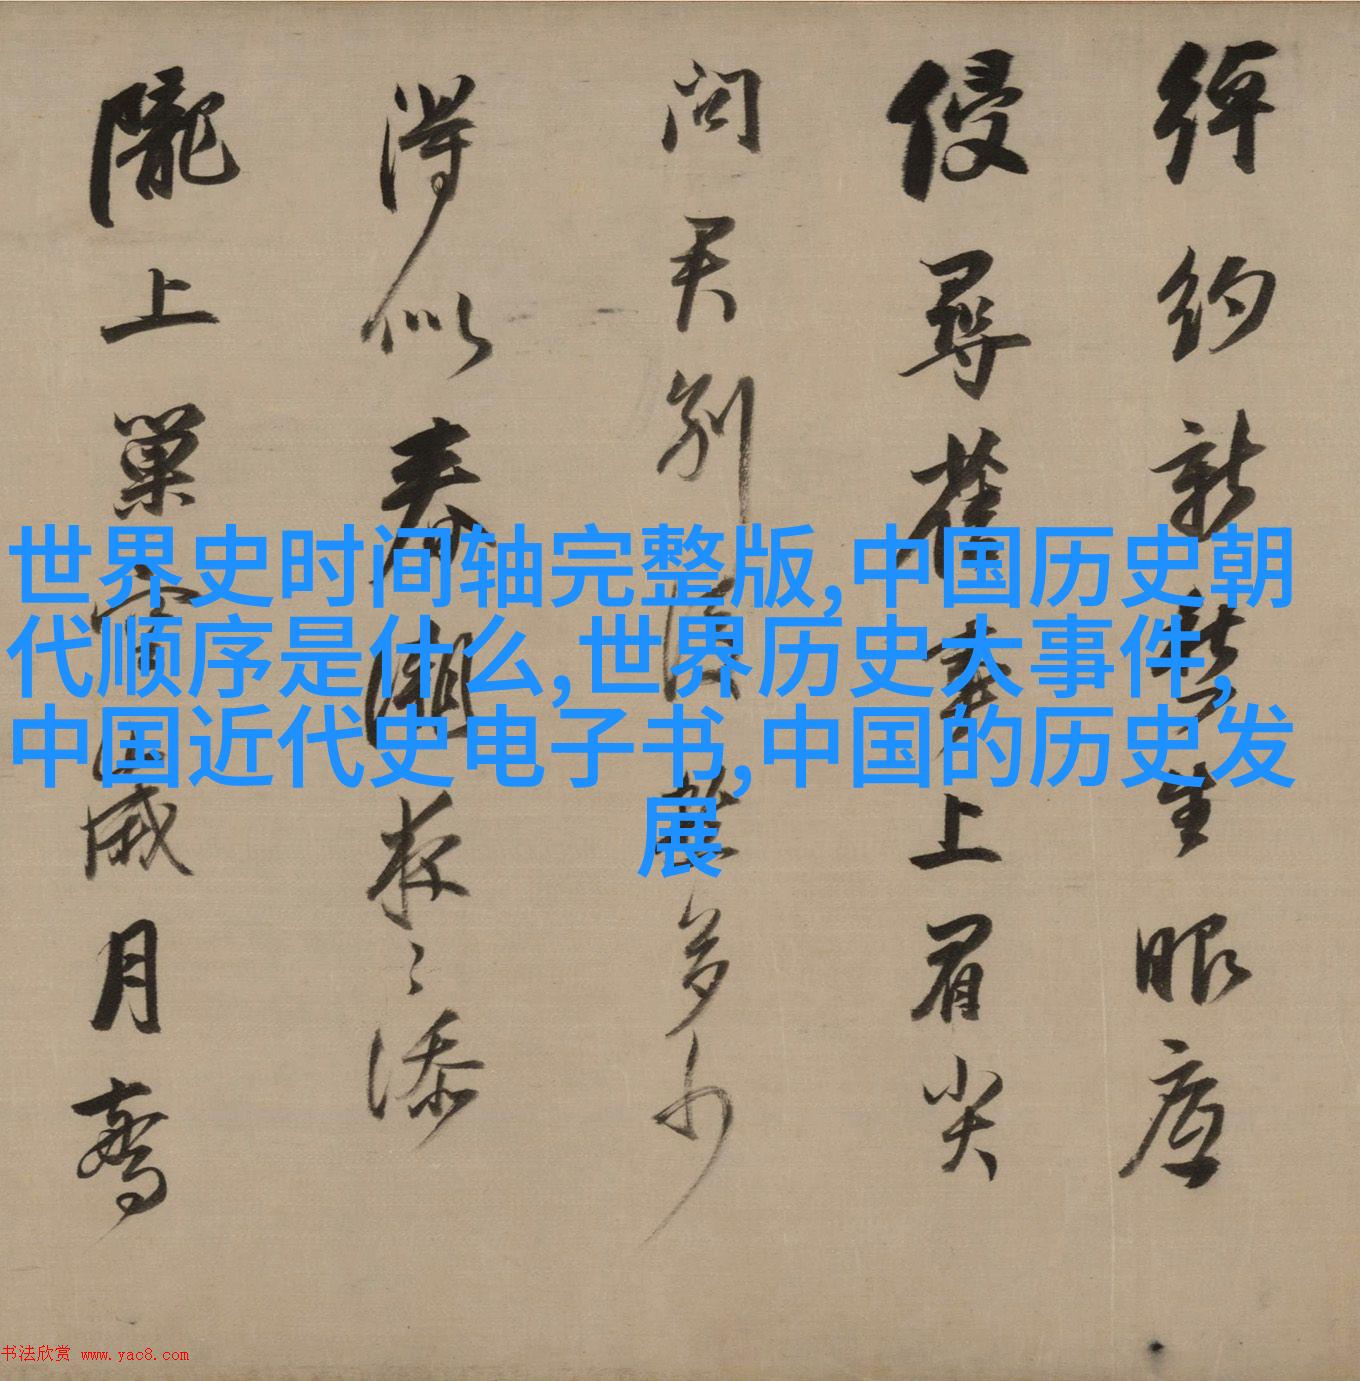 綽約新生眼底
侵尋舊事上眉尖
問君別後愁多少
得似春潮夜〻添
隴上巢空歲月驚
世界史时间轴完整版,中国历史朝
代顺序是什么,世界历史大事件,
中国近代史电子书,中国的历史发
展
书法欣赏 www.yac8.com